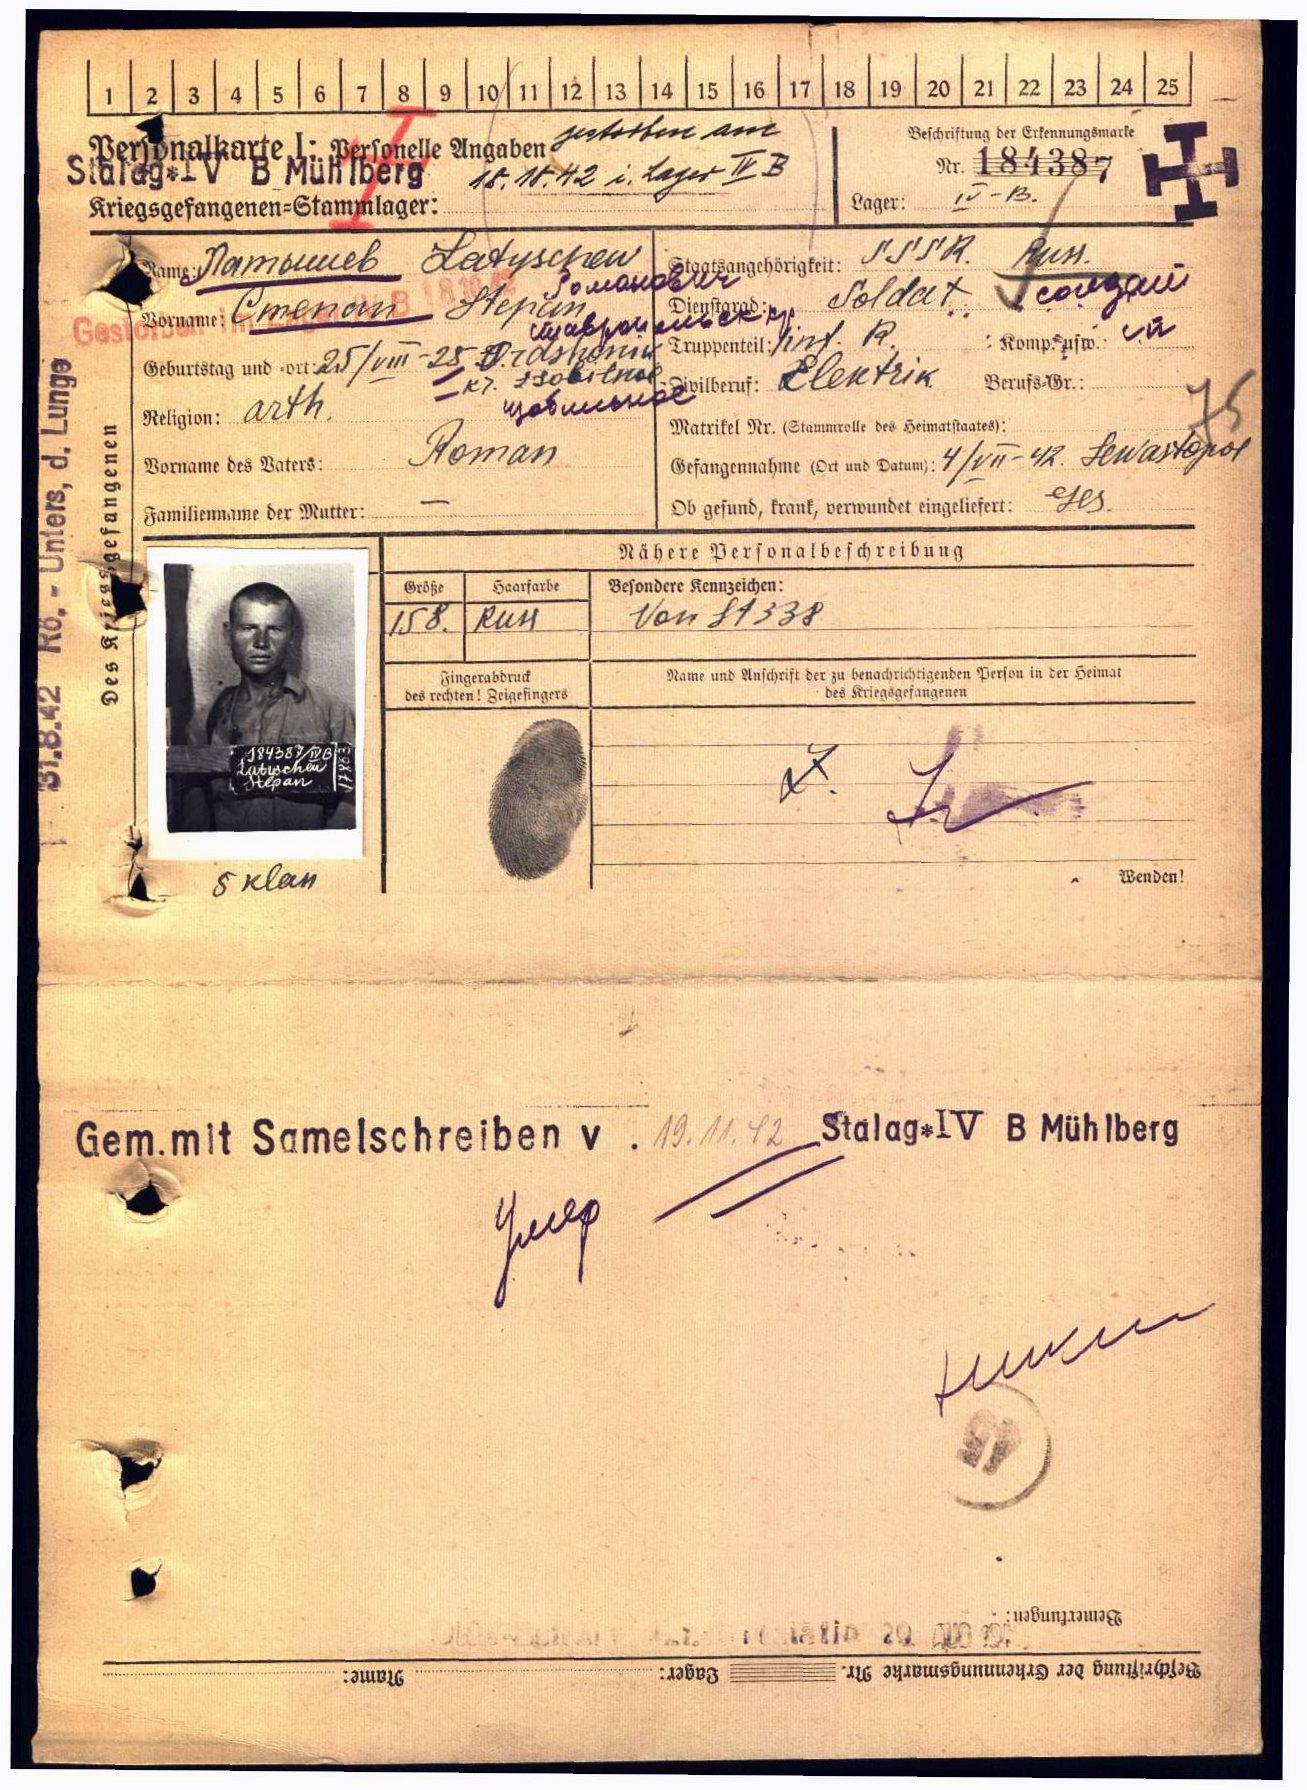 1 2 3 4 5 6 7 8 9 10 11 12 13 14 15 16 17 18 19 20 21 22 23 24 25
Personalkarte I: Personelle Angaben
gestorben am
18.10.42 i. Lager IV B
Stalag*IV B Mühlberg
Kriegsgefangenen=Stammlager:
Beschriftung der Erkennungsmarke
Nr. 184387
Lager: IV-B.
Des Kriegsgefangenen
31.8.42 Rö.- Unters, d. Lunge
Name: Латышев Latyschew
Романович
Gestorben im Lager IV B 18.10.42
Vorname: Степан Stepan
Ставропольск кр
Geburtstag und -ort: 25/VIII-25 Ordshonik
кр. Isobilnoe
Religion: orth.
Vorname des Vaters: Roman
Familienname der Mutter: —
Staatsangehörigkeit: SSSR. Russ.
Dienstgrad: Soldat солдат
Truppenteil: Inf. R. Komp. usw.:
Zivilberuf: Elektrik Berufs-Gr.:
75
Matrikel Nr. (Stammrolle des Heimatstaates):
Gefangennahme (Ort und Datum): 4/VII-42. Sewastopol
Ob gesund, krank, verwundet eingeliefert: ges.
Nähere Personalbeschreibung
Größe Haarfarbe Besondere Kennzeichen:
158. Russ Von St 338
Fingerabdruck
des rechten! Zeigefingers
Name und Anschrift der zu benachrichtigenden Person in der Heimat
des Kriegsgefangenen
184387/IVB
Latyschew
Stepan
5 klas
Wenden!
Gem.mit Samelschreiben v . 19.11.42 Stalag*IV B Mühlberg
Умер
Bemerkungen:
Beschriftung der Erkennungsmarke Nr. Lager: Name: